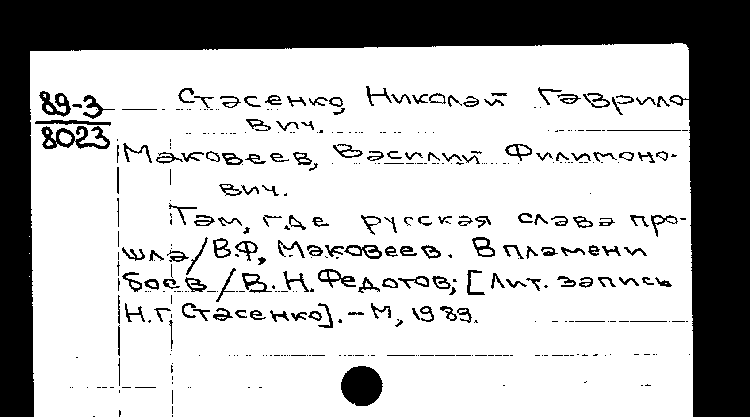 89-3
8023
Стасенко, Николай Гаврило-
вич.
Маковеев, Василий Филимоно-
вич.
Там, где русская слава про-
шла / В.Ф. Маковеев. В пламени
боев / В. Н. Федотов; [Лит. запись
Н.Г. Стасенко]. - М, 1989.